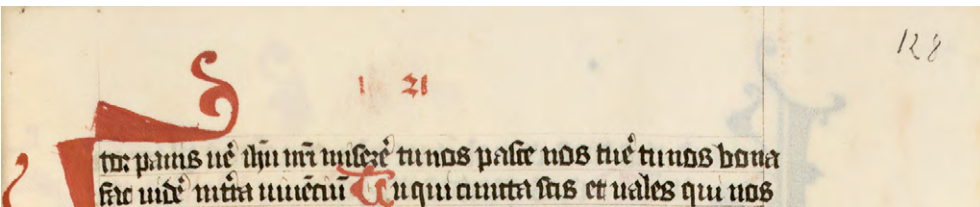 128
tor panis uē ihū nr̄i miserē tu nos pasce nos tuē tu nos bona
fac uidē in t̄ra uiuēciū Tu qui cuncta scis et uales qui nos